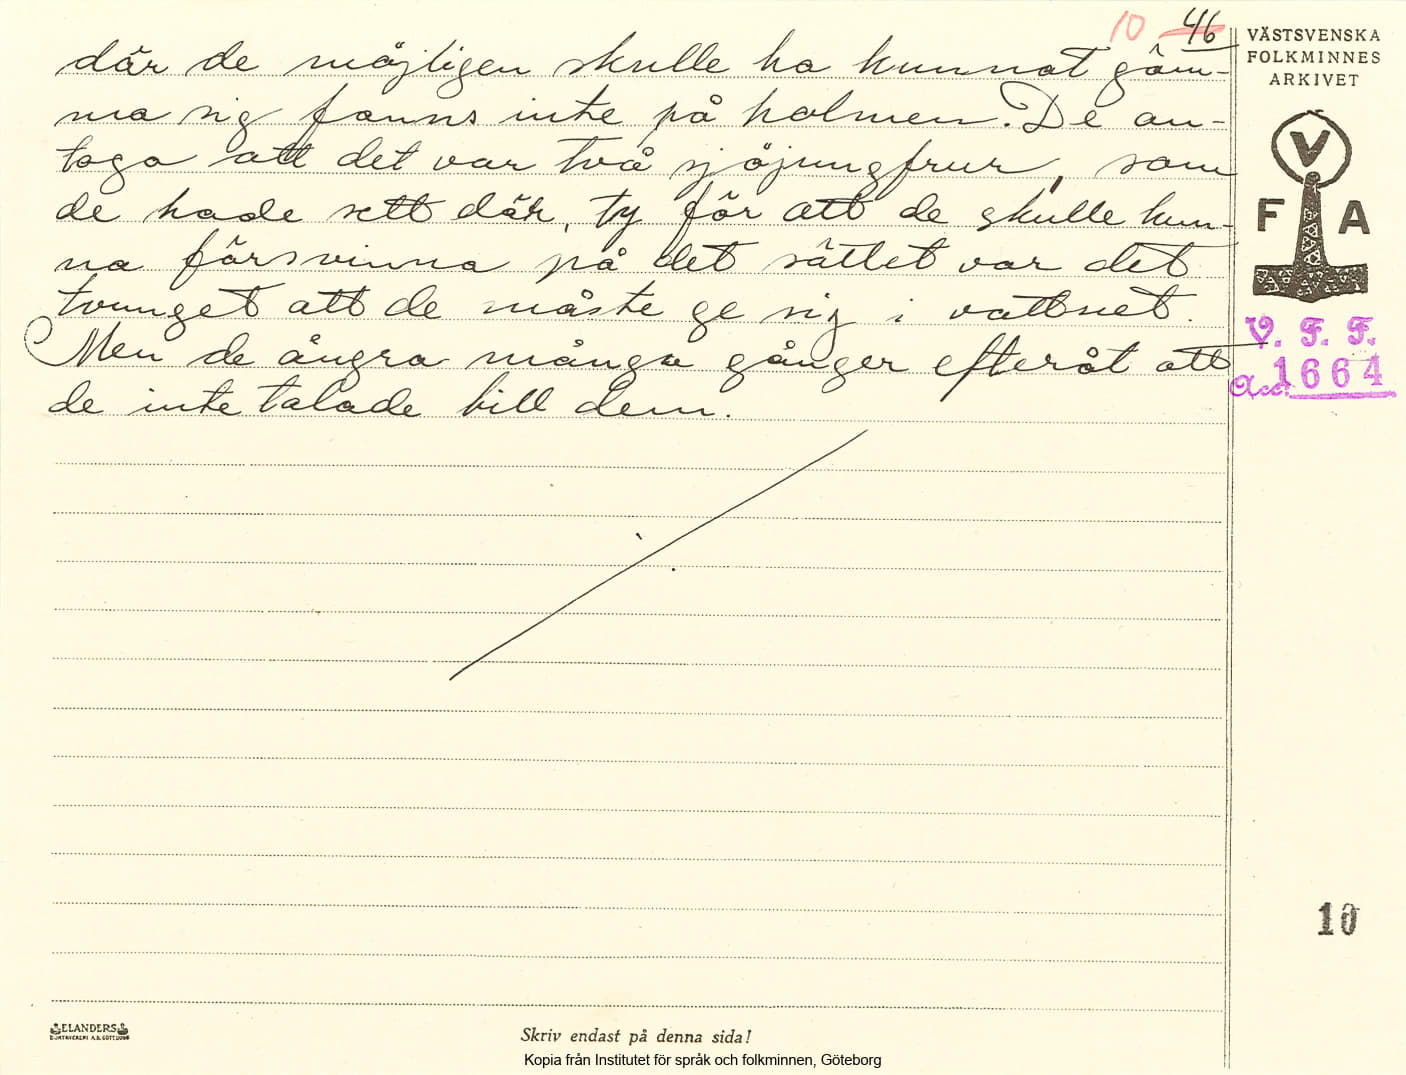 10 46
där de möjligen skulle ha kunnat göm-
ma sig fanns inte på holmen. De an-
togo att det var två sjöjungfrur, som
de hade sett där, ty för att de skulle kun-
na försvinna på det sättet var det
tvunget att de måste ge sig i vattnet.
Men de ångra många gånger efteråt att
de inte talade till dem.
VÄSTSVENSKA
FOLKMINNES
ARKIVET
V
F A
V. F. F.
Acc. 1664
10
ELANDERS
Skriv endast på denna sida!
Kopia från Institutet för språk och folkminnen, Göteborg